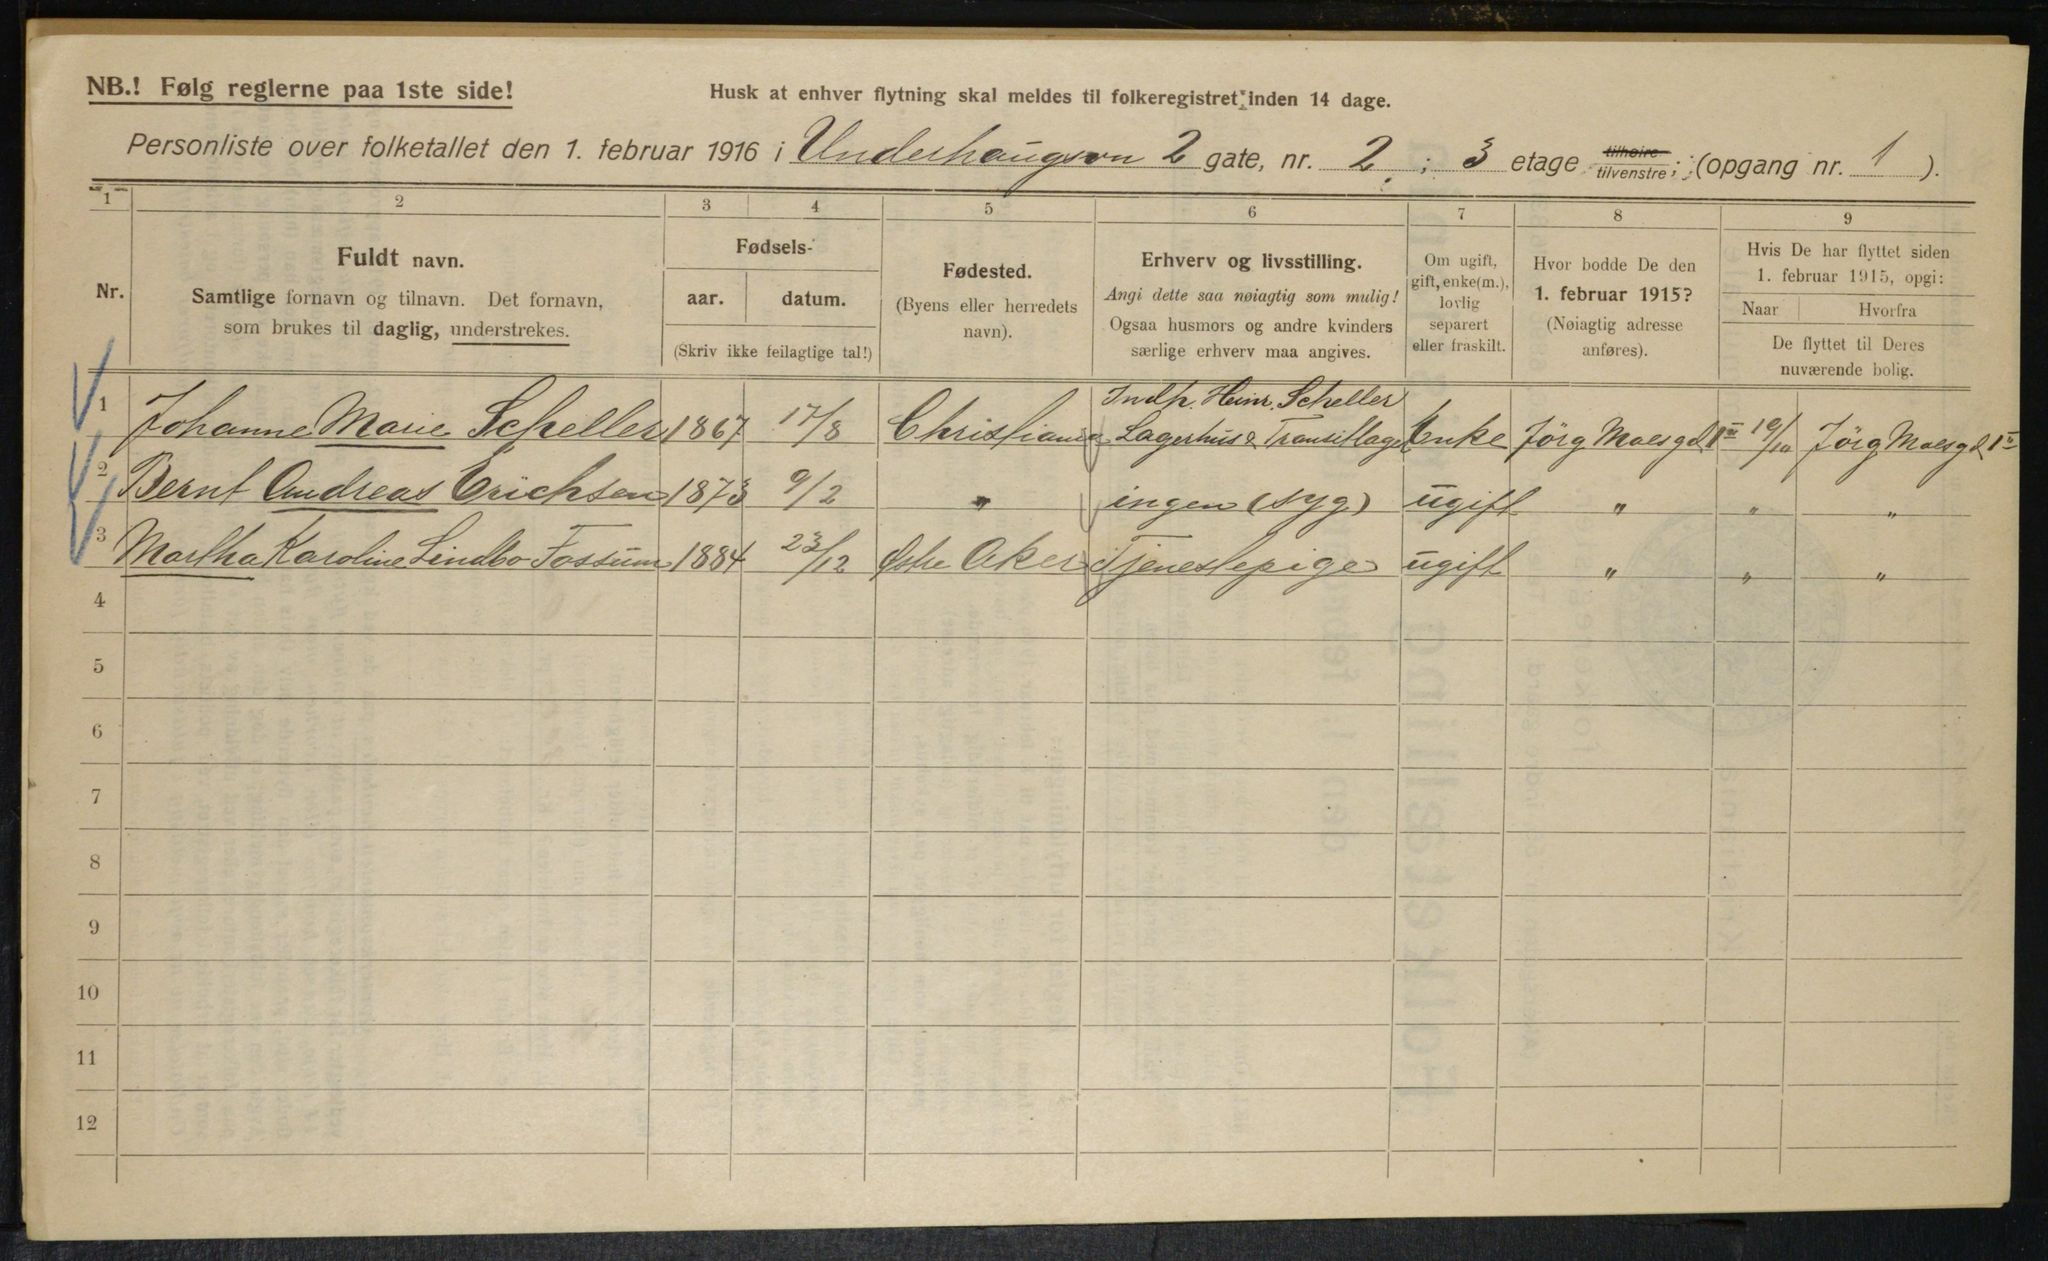 NB.! Følg reglerne paa 1ste side!
Husk at enhver flytning skal meldes til folkeregistret inden 14 dage.
Personliste over folketallet den 1. februar 1916 i Underhaugsvn 2 gate, nr. 2 ; 3 etage tilhøire tilvenstre; (opgang nr. 1 ).
1 2 3 4 5 6 7 8 9
Nr.
Fuldt navn.
Samtlige fornavn og tilnavn. Det fornavn,
som brukes til daglig, understrekes.
Fødsels-
aar. datum.
(Skriv ikke feilagtige tal!)
Fødested.
(Byens eller herredets
navn).
Erhverv og livsstilling.
Angi dette saa nøiagtig som mulig!
Ogsaa husmors og andre kvinders
særlige erhverv maa angives.
Om ugift,
gift, enke(m.),
lovlig
separert
eller fraskilt.
Hvor bodde De den
1. februar 1915?
(Nøiagtig adresse
anføres).
Hvis De har flyttet siden
1. februar 1915, opgi:
Naar Hvorfra
De flyttet til Deres
nuværende bolig.
Indh. Heinr. Scheller
1 Johanne Marie Scheller 1867 17/8 Christiania Lagerhus & Transitlager Enke Jörg Moesgd 1 III 10/10 Jörg Moesgd 1 II
2 Bernt Andreas Erichsen 1873 9/2 " ingen (syg) ugift " " "
3 Martha Karoline Lindbo Fossum 1884 23/12 Østre Aker Tjenestepige ugift " " "
4
5
6
7
8
9
10
11
12